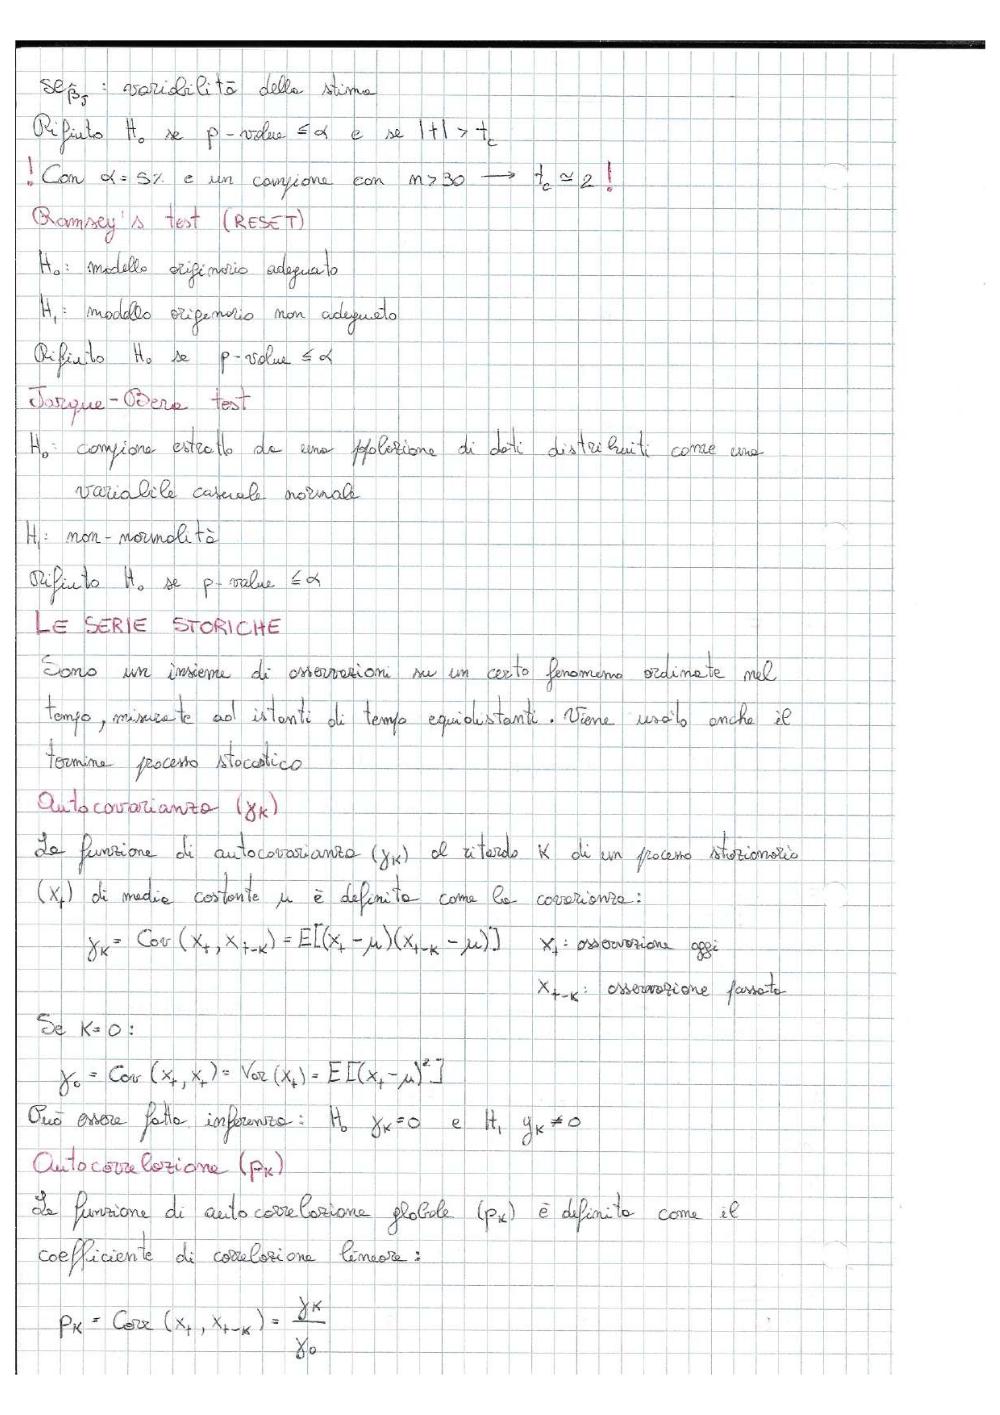 se_β̂j : variabilità della stima
Rifiuto H₀ se p-value ≤ α e se |t| > t_c
! Con α = 5% e un campione con n > 30 → t_c ≃ 2 !
Ramsey's test (RESET)
H₀: modello originario adeguato
H₁: modello origenario non adeguato
Rifiuto H₀ se p-value ≤ α
Jarque-Bera test
H₀: campione estratto da una ppolazione di dati distribuiti come una
variabile casuale normale
H₁: non-normalità
Rifiuto H₀ se p-value ≤ α
LE SERIE STORICHE
Sono un insieme di osservazioni su un certo fenomeno ordinate nel
tempo, misurate ad istanti di tempo equidistanti. Viene usato anche il
termine processo stocastico
Autocovarianza (γκ)
La funzione di autocovarianza (γκ) al ritardo K di un processo stazionario
(Xₜ) di media costante μ è definita come la covarianza:
γκ = Cov (Xₜ, Xₜ₋κ) = E[(Xₜ - μ)(Xₜ₋κ - μ)] Xₜ: osservazione oggi
Xₜ₋κ: osservazione passata
Se K=0:
γ₀ = Cov (Xₜ, Xₜ) = Var (Xₜ) = E[(Xₜ-μ)²]
Può essere fatta inferenza: H₀ γκ = 0 e H₁ γκ ≠ 0
Autocorrelazione (ρκ)
La funzione di autocorrelazione globale (ρκ) è definita come il
coefficiente di correlazione lineare:
ρκ = Corr (Xₜ, Xₜ₋κ) = γκ / γ₀